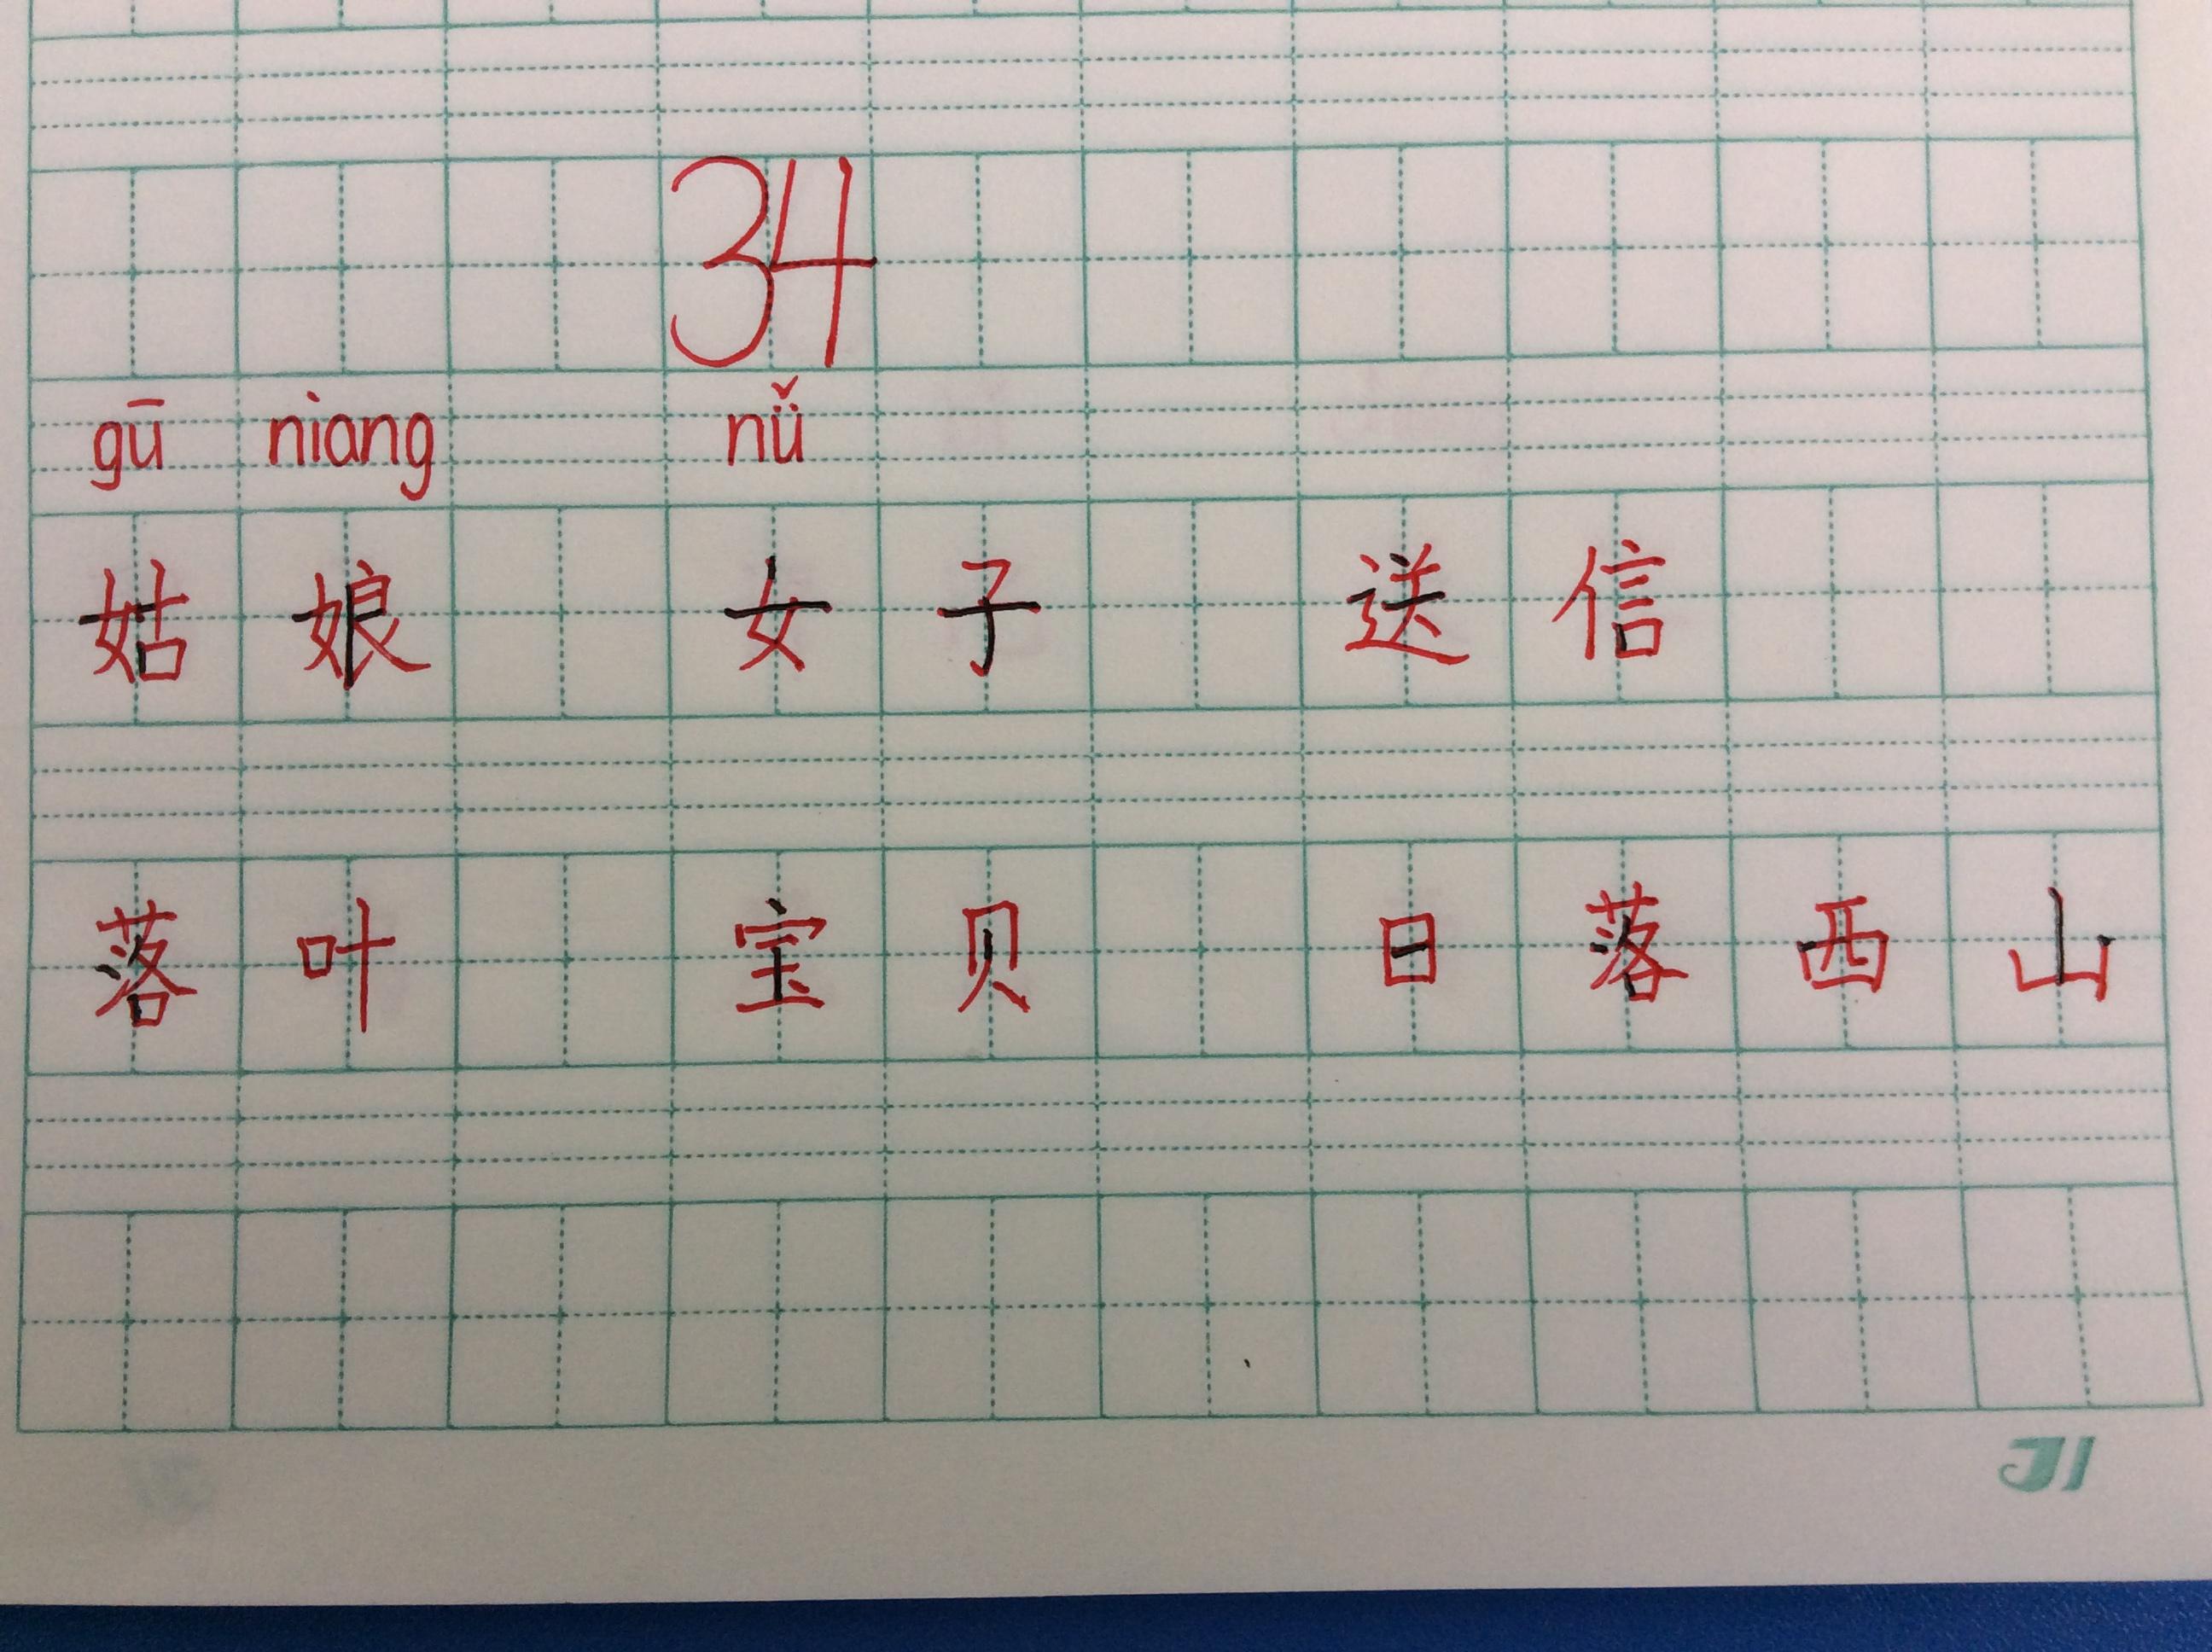 34
gū niang nǚ
姑娘 女子 送信
落叶 宝贝 日落西山